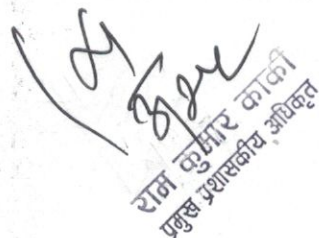 राम कुमार कार्की
प्रमुख प्रशासकीय अधिकृत